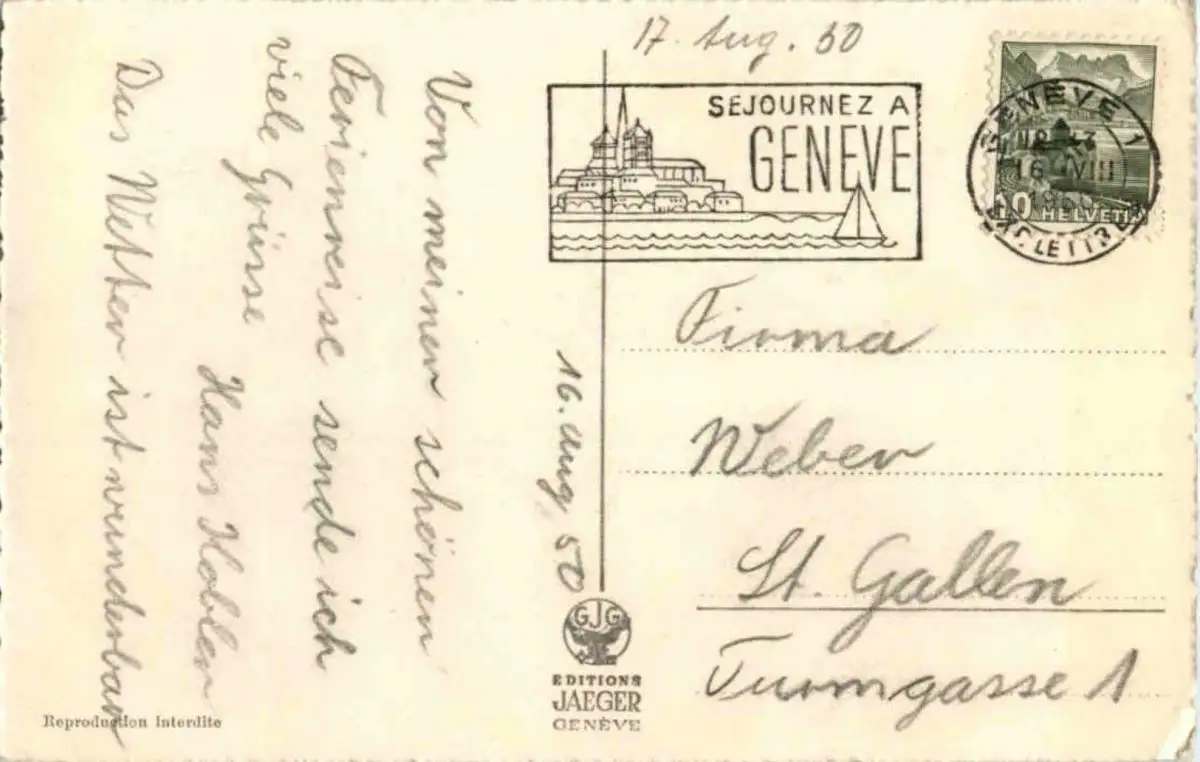 17. Aug. 50
SEJOURNEZ A
GENEVE
GENEVE 1
16 VIII
HELVETIA
Von meinen schönen
Ferienreise sende ich
viele Grüsse
Hans Kobler
Das Wetter ist wunderbar
16. Aug. 50
Firma
Weber
St. Gallen
Turmgasse 1
GJG
EDITIONS
JAEGER
GENÈVE
Reproduction interdite